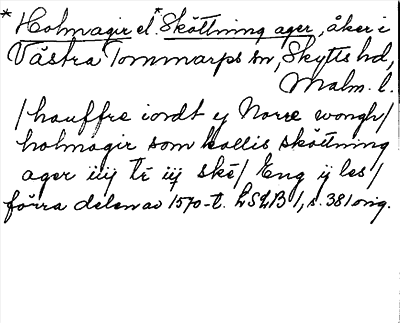 *Holmagir el. *Sköttning ager, åker i
Västra Tommarps sn, Skytts hd,
Malm. l.
/ hauffre iordt ij Norre wongh /
holmagir som kallis sköttning
ager iiij tr iij skè / Eng ij les /
förra delen av 1570-t. LSLB 1, s. 381 orig.